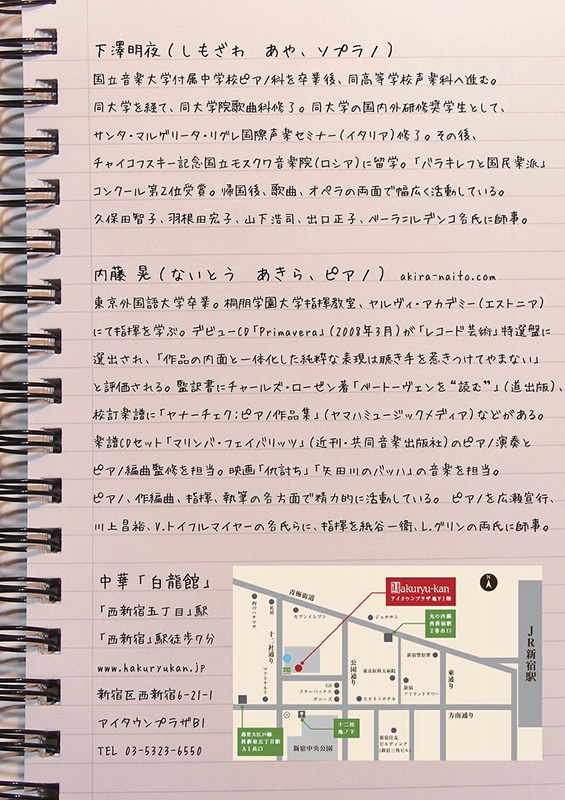 下澤明夜(しもざわ　あや、ソプラノ)
国立音楽大学付属中学校ピアノ科を卒業後、同高等学校声楽科へ進む。
同大学を経て、同大学院歌曲科修了。同大学の国内外研修奨学生として、
サンタ・マルゲリータ・リグレ国際声楽セミナー(イタリア)修了。その後、
チャイコフスキー記念国立モスクワ音楽院(ロシア)に留学。「バラキレフと国民楽派」
コンクール第2位受賞。帰国後、歌曲、オペラの両面で幅広く活動している。
久保田智子、羽根田宏子、山下浩司、出口正子、ベーラ=ルデンコ各氏に師事。
内藤 晃(ないとう　あきら、ピアノ) akira-naito.com
東京外国語大学卒業。桐朋学園大学指揮教室、ヤルヴィ・アカデミー(エストニア)
にて指揮を学ぶ。デビューCD「Primavera」(2008年3月)が「レコード芸術」特選盤に
選出され、「作品の内面と一体化した純粋な表現は聴き手を惹きつけてやまない」
と評価される。監訳書にチャールズ・ローゼン著「ベートーヴェンを“読む”」(道出版)、
校訂楽譜に「ヤナーチェク:ピアノ作品集」(ヤマハミュージックメディア)などがある。
楽譜CDセット「マリンバ・フェイバリッツ」(近刊・共同音楽出版社)のピアノ演奏と
ピアノ編曲監修を担当。映画「仇討ち」「矢田川のバッハ」の音楽を担当。
ピアノ、作編曲、指揮、執筆の各方面で精力的に活動している。 ピアノを広瀬宣行、
川上昌裕、V.トイフルマイヤーの各氏らに、指揮を紙谷一衞、L.グリンの両氏に師事。
中華「白龍館」
「西新宿五丁目」駅
「西新宿」駅徒歩7分
www.hakuryukan.jp
新宿区西新宿6-21-1
アイタウンプラザB1
TEL 03-5323-6550
Hakuryu-kan
アイタウンプラザ 地下1階
N
青梅街道
セブンイレブン
ジョナサン
丸の内線
西新宿駅
2番出口
十二社通り
公園通り
新宿警察署
東京医科大病院
東通り
JR新宿駅
マクドナルド
GS
スターバックス
デニーズ
ヒルトンホテル
新宿
アイランドタワー
方南通り
都営大江戸線
西新宿五丁目駅
A1出口
十二社
池ノ下
新宿中央公園
新宿住友
ビルディング
(新宿三角ビル)